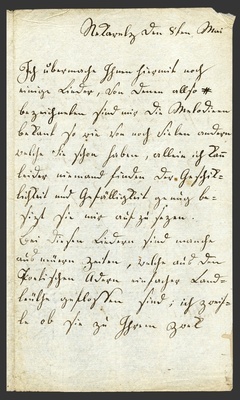 den 8ten Mai
Ich übermache Ihnen hiermit noch
einige Lieder, von denen allso *
bezeichneten sind mir die Melodieen
bekant so wie von noch sieben andern
welche Sie schon haben, allein ich kan
leider niemand finden der Geschik-
lichkeit und Gefälligkeit genug be-
sizt sie mir auf zu sezen.
Bei diesen Liedern sind manche
aus neuern zeiten, welche aus den
Poetischen Adern einfacher Land-
leuthe geflossen sind; ich zweif-
le ob sie zu Ihrem zwek